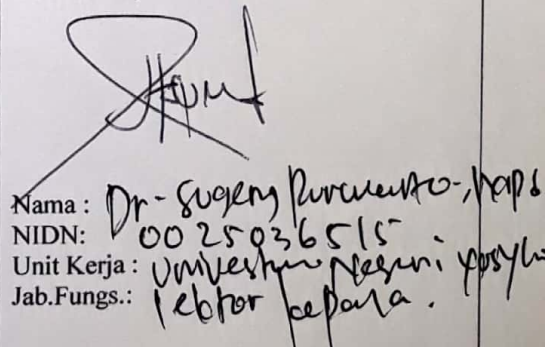 Nama : Dr. Sugeng Purwanto, M.Pd
NIDN: 0025036515
Unit Kerja : Universitas Negeri
Jab.Fungs.: Lektor Kepala.